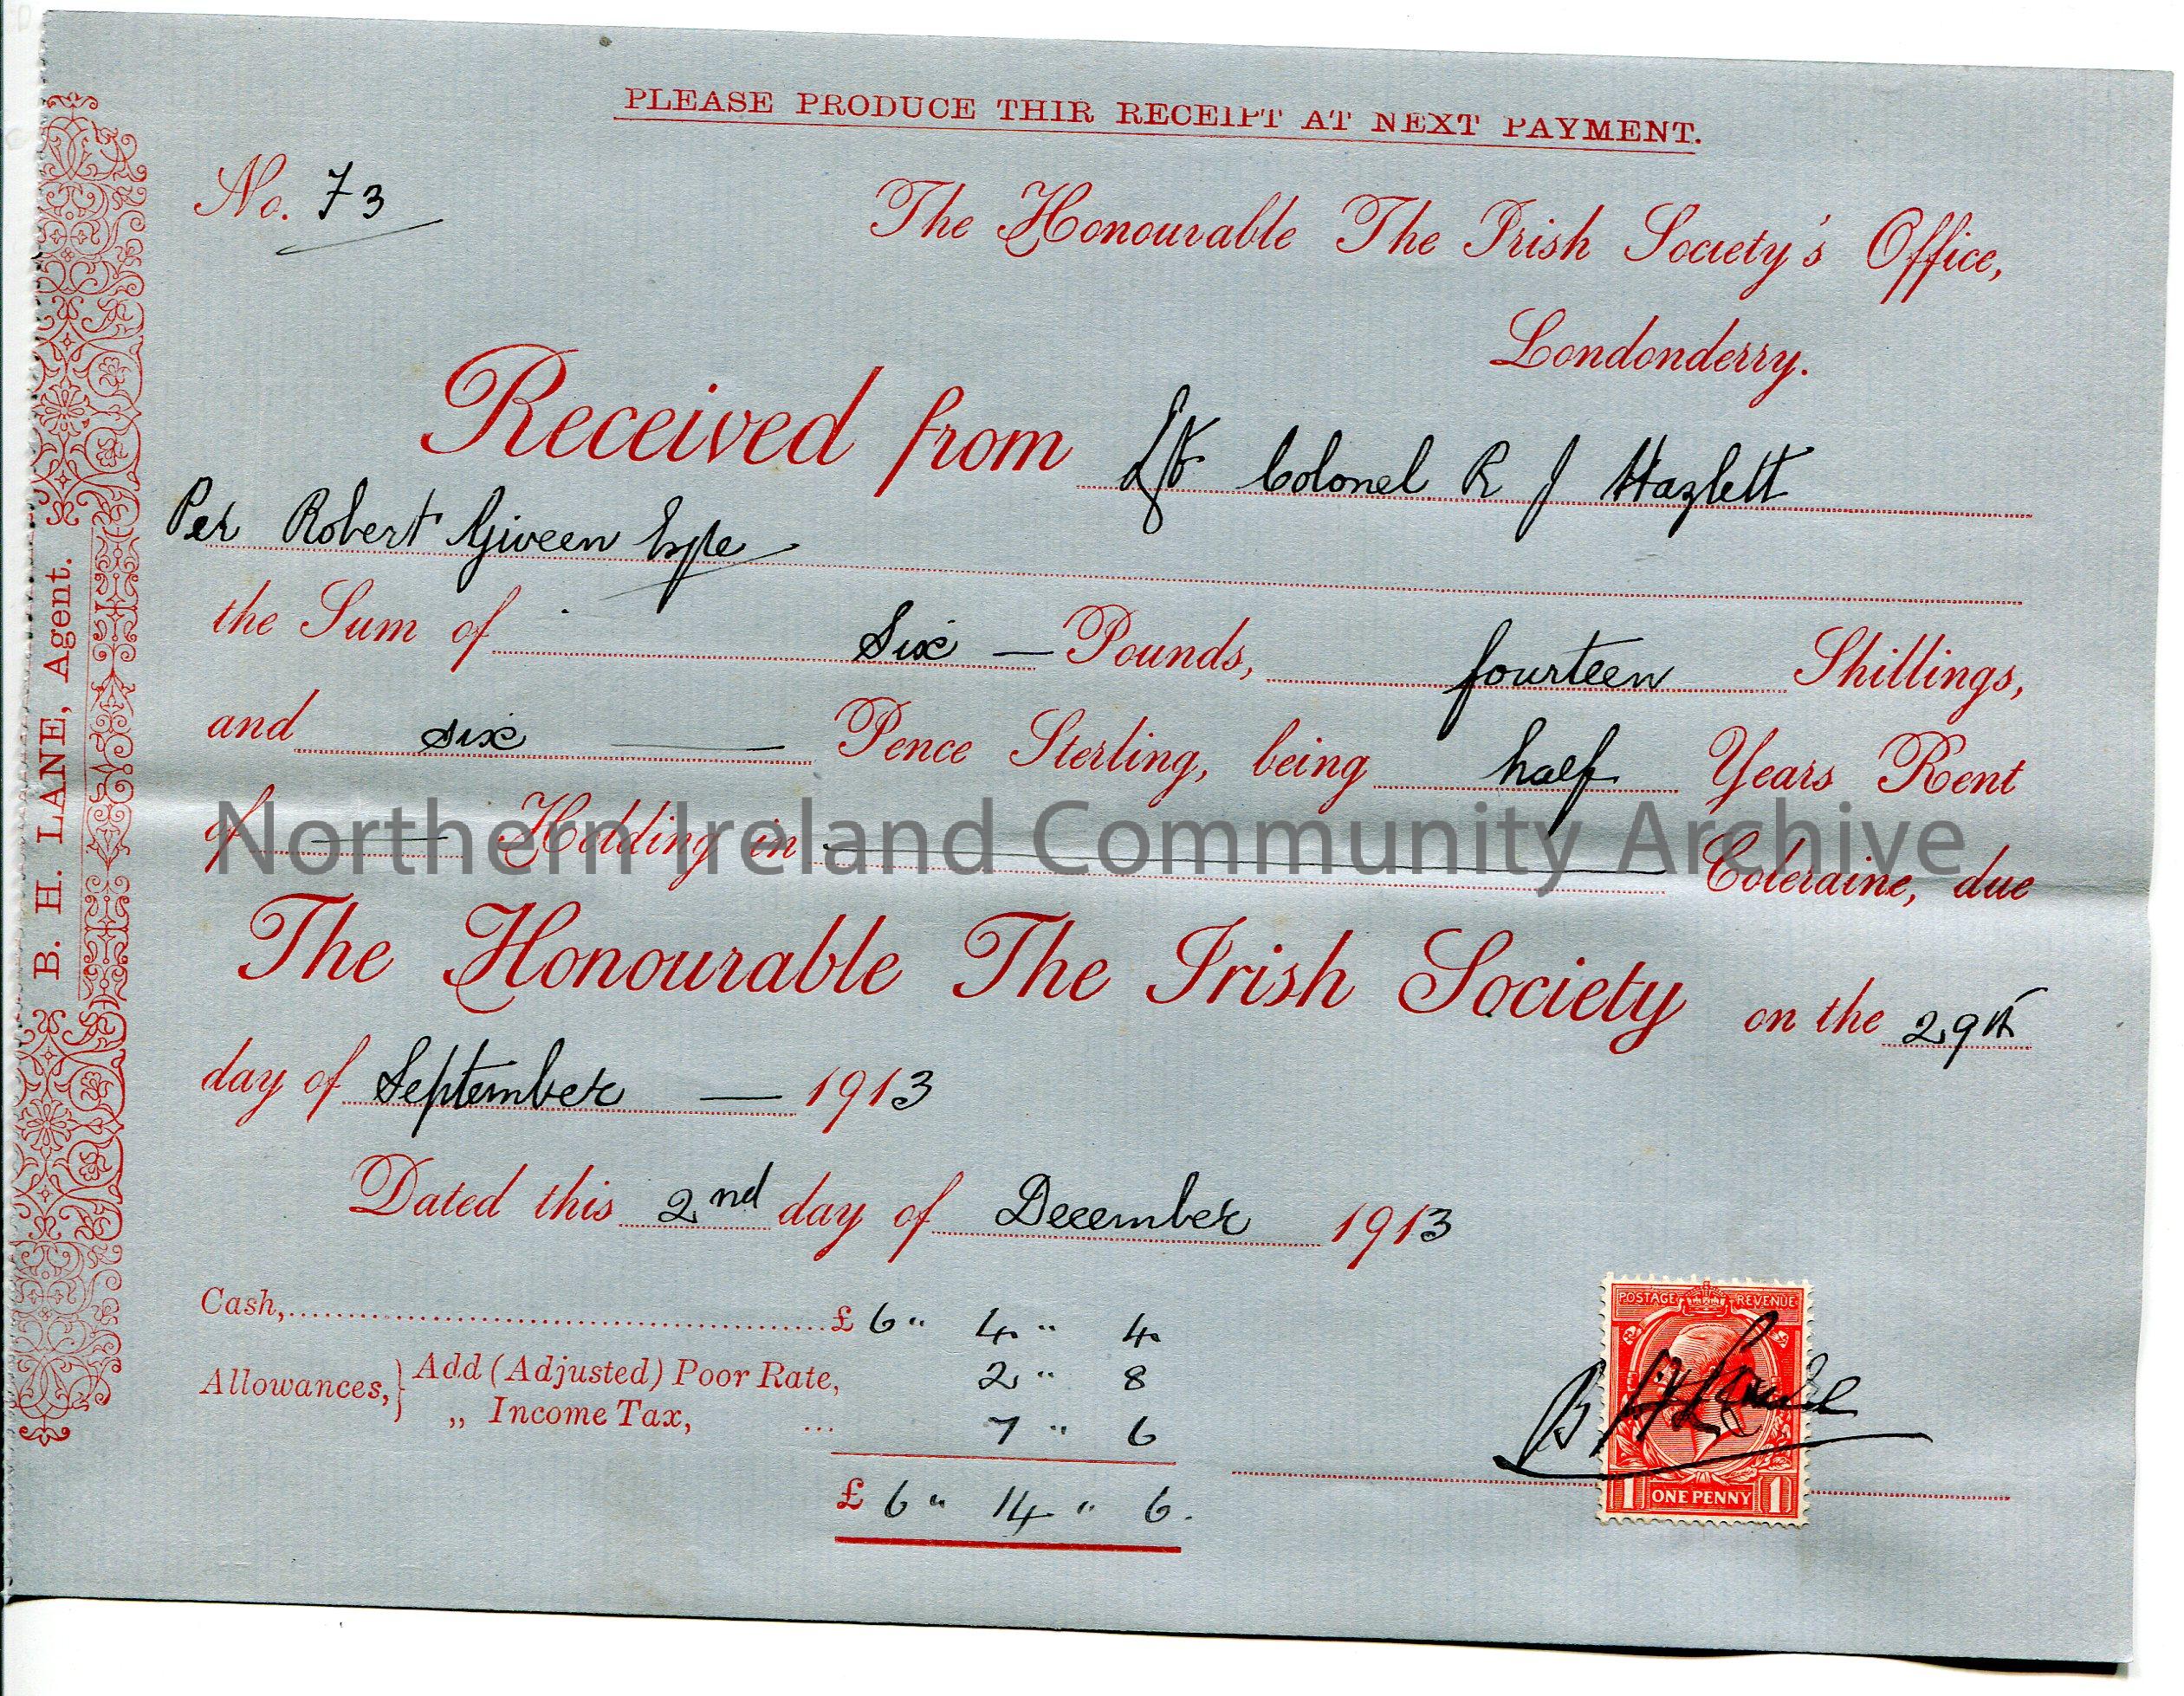 PLEASE PRODUCE THIR RECEIPT AT NEXT PAYMENT.
No. 73
The Honourable The Irish Society's Office,
Londonderry.
Received from Lt Colonel R J Hazlett
Per Robert Giveen Esqre
the Sum of Six — Pounds, fourteen Shillings,
and six — Pence Sterling, being half Years Rent
of — Holding in — Coleraine, due
The Honourable The Irish Society on the 29th
day of September — 1913
Dated this 2nd day of December 1913
Cash,.......... £ 6 " 4 " 4
Allowances, } Add (Adjusted) Poor Rate, 2 " 8
„ Income Tax, ... 7 " 6
£ 6 " 14 " 6.
B H Lane
POSTAGE REVENUE
1 ONE PENNY 1
B. H. LANE, Agent.
Northern Ireland Community Archive